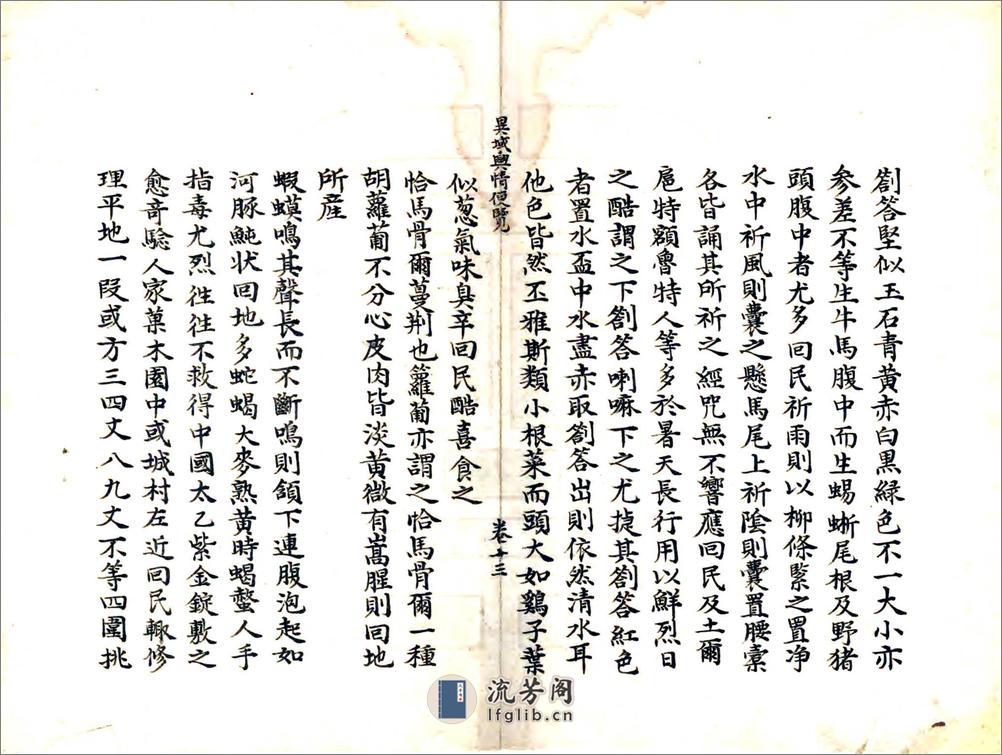 劄答堅似玉石青黄赤白黒緑色不一大小亦
参差不等生牛馬腹中而生蜴蜥尾根及野猪
頭腹中者尤多回民祈雨則以柳條繋之置净
水中祈風則囊之懸馬尾上祈陰則囊置腰橐
各皆誦其所祈之經咒無不響應回民及土爾
扈特額魯特人等多於暑天長行用以鮮烈日
之酷謂之下劄答喇嘛下之尤㨗其劄答紅色
者置水盃中水盡赤取劄答出則依然清水耳
他色皆然丕雅斯類小根菜而頭大如鷄子葉
異域輿情便覽
卷十三
似葱氣味臭辛回民酷喜食之
恰馬骨爾蔓荆也籮葡亦謂之恰馬骨爾一種
胡蘿葡不分心皮肉皆淡黄微有嵩腥則回地
所産
蝦蟆鳴其聲長而不斷鳴則頷下連腹泡起如
河豚魨状回地多蛇蝎大麥熟黄時蝎螫人手
指毒尤烈徃徃不救得中國太乙紫金錠敷之
愈竒騐人家菓木園中或城村左近回民輙修
理平地一段或方三四丈八九丈不等四圍挑
流芳阁
lfglib.cn